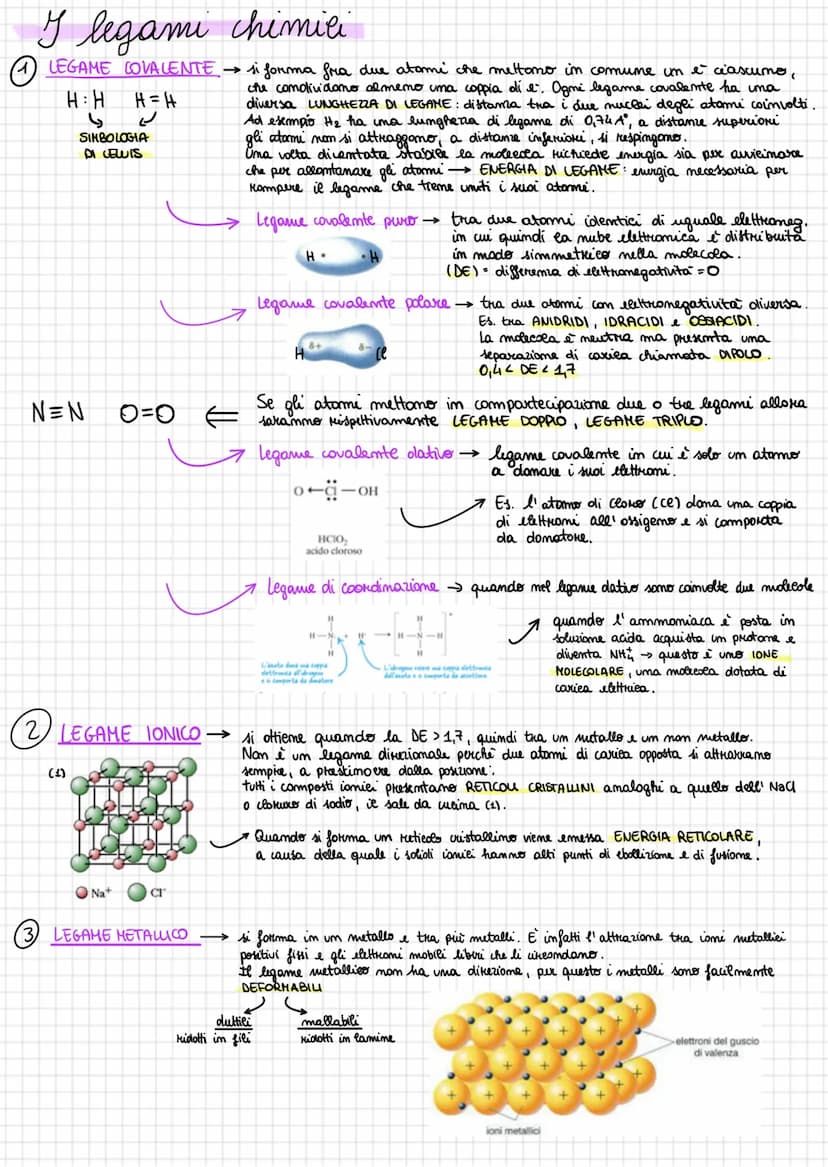 I legami chimici
1 LEGAME COVALENTE → si forma fra due atomi che mettono in comune un e⁻ ciascuno,
che condividono almeno una coppia di e⁻. Ogni legame covalente ha una
H:H H=H
diversa LUNGHEZZA DI LEGAME: distanza tra i due nuclei degli atomi coinvolti.
Ad esempio H₂ ha una lunghezza di legame di 0,74 A°, a distanze superiori
SIMBOLOGIA
DI LEWIS
gli atomi non si attraggono, a distanze inferiori, si respingono.
Una volta diventata stabile la molecola richiede energia sia per avvicinare
che per allontanare gli atomi → ENERGIA DI LEGAME: energia necessaria per
rompere il legame che tiene uniti i suoi atomi.
Legame covalente puro → tra due atomi identici di uguale elettroneg.
in cui quindi la nube elettronica è distribuita
in modo simmetrico nella molecola.
(DE) = differenza di elettronegatività = 0
H H
Legame covalente polare → tra due atomi con elettronegatività diversa.
Es. tra ANIDRIDI, IDRACIDI e OSSIACIDI.
La molecola è neutra ma presenta una
separazione di carica chiamata DIPOLO.
0,4 < DE < 1,7
H δ+ δ− Cl
N≡N O=O ⇐ Se gli atomi mettono in compartecipazione due o tre legami allora
saranno rispettivamente LEGAME DOPPIO, LEGAME TRIPLO.
Legame covalente dativo → legame covalente in cui è solo un atomo
a donare i suoi elettroni.
O←Cl—OH
HClO₂
acido cloroso
Es. l'atomo di cloro (Cl) dona una coppia
di elettroni all'ossigeno e si comporta
da donatore.
Legame di coordinazione → quando nel legame dativo sono coinvolte due molecole
H H
H—N: + H⁺ → [H—N—H]⁺
H H
L'azoto dona una coppia
elettronica all'idrogeno
e si comporta da donatore
L'idrogeno riceve una coppia elettronica
dall'azoto e si comporta da accettore
quando l'ammoniaca è posta in
soluzione acida acquista un protone e
diventa NH₄⁺ → questo è uno IONE
MOLECOLARE, una molecola dotata di
carica elettrica.
2 LEGAME IONICO → si ottiene quando la DE > 1,7, quindi tra un metallo e un non metallo.
Non è un legame direzionale perché due atomi di carica opposta si attrarranno
sempre, a prescindere dalla posizione.
(1)
tutti i composti ionici presentano RETICOLI CRISTALLINI analoghi a quello dell'NaCl
o cloruro di sodio, il sale da cucina (1).
Quando si forma un reticolo cristallino viene emessa ENERGIA RETICOLARE,
a causa della quale i solidi ionici hanno alti punti di ebollizione e di fusione.
Na⁺ Cl⁻
3 LEGAME METALLICO → si forma in un metallo e tra più metalli. È infatti l'attrazione tra ioni metallici
positivi fissi e gli elettroni mobili liberi che li circondano.
Il legame metallico non ha una direzione, per questo i metalli sono facilmente
DEFORMABILI
duttili malleabili
ridotti in fili ridotti in lamine
elettroni del guscio
di valenza
ioni metallici